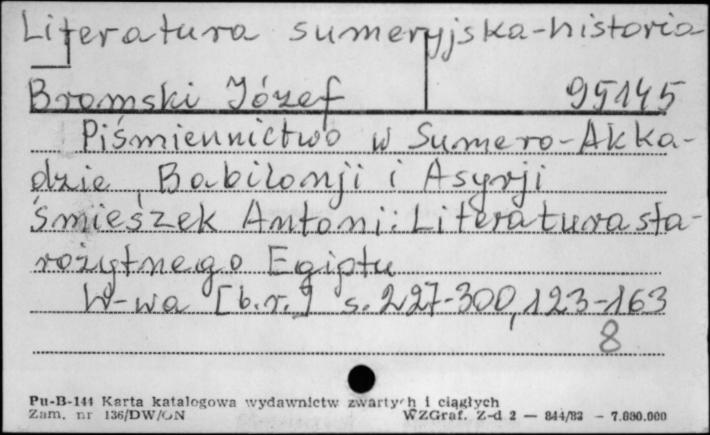 Literatura sumeryjska-historia
Bromski Józef 95145
Piśmiennictwo w Sumero-Akka-
dzie, Babilonji i Asyrji
Śmieszek Antoni: Literatura sta-
rożytnego Egiptu
W-wa [b.r.] s. 227-300, 123-163
8
Pu-B-144 Karta katalogowa wydawnictw zwartych i ciągłych
Zam. nr 136/DW/ON WZGraf. Z-d 2 — 844/82 — 7.000.000